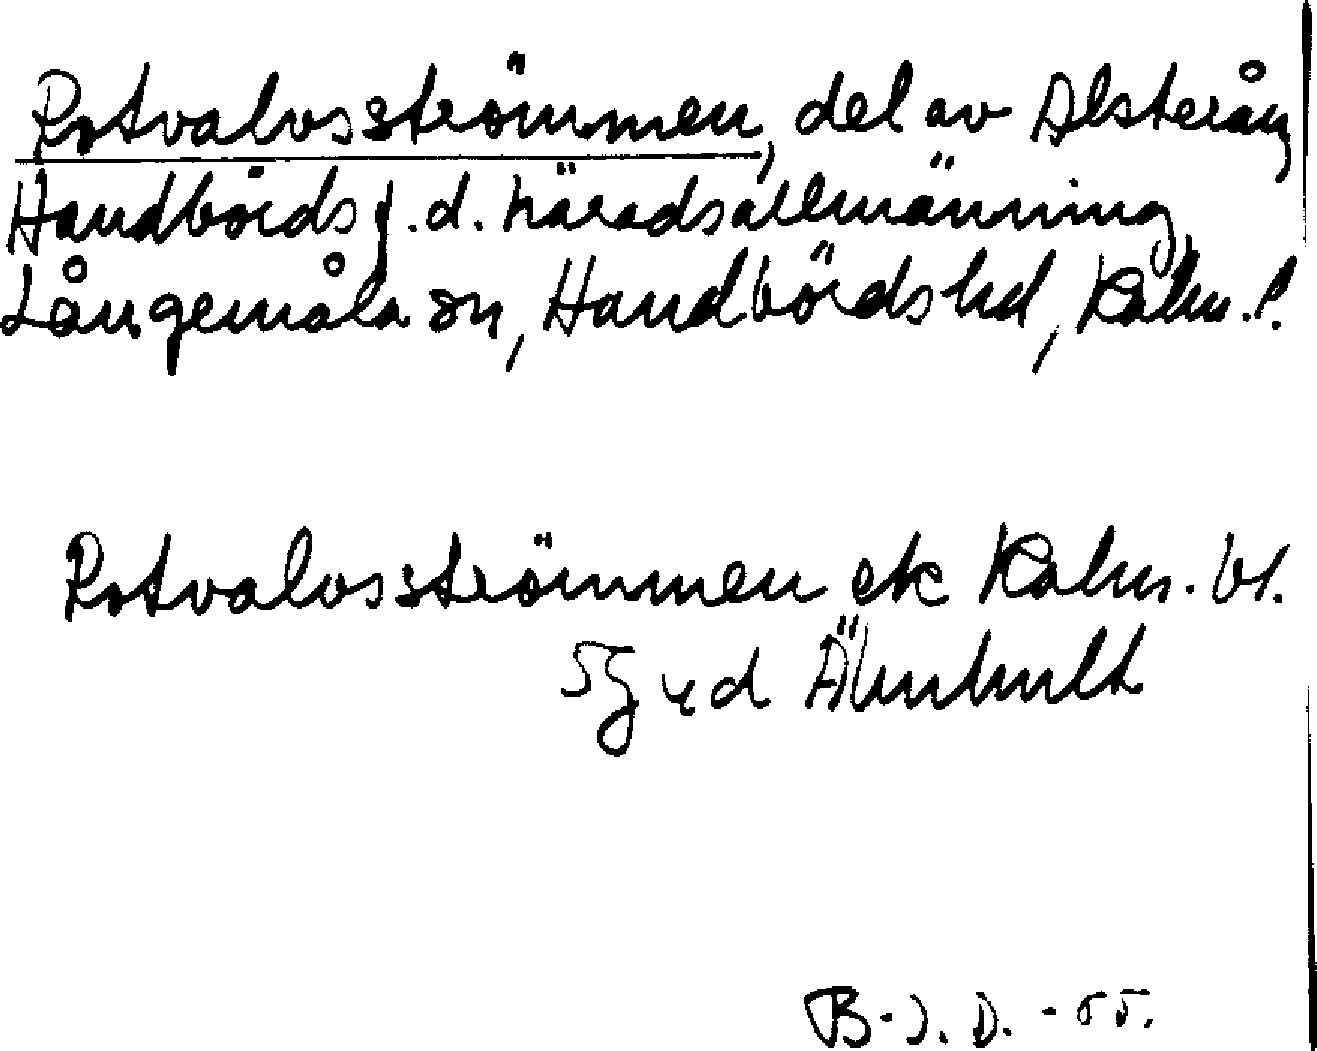 Rotvalvsströmmen, del av Alsterån,
Handbörds f.d. häradsallmänning,
Långemåla sn, Handbörds hd, Kalm. l.
Rotvalvsströmmen ek Kalm. bl.
5g Älmhult
B-J. D. -55.